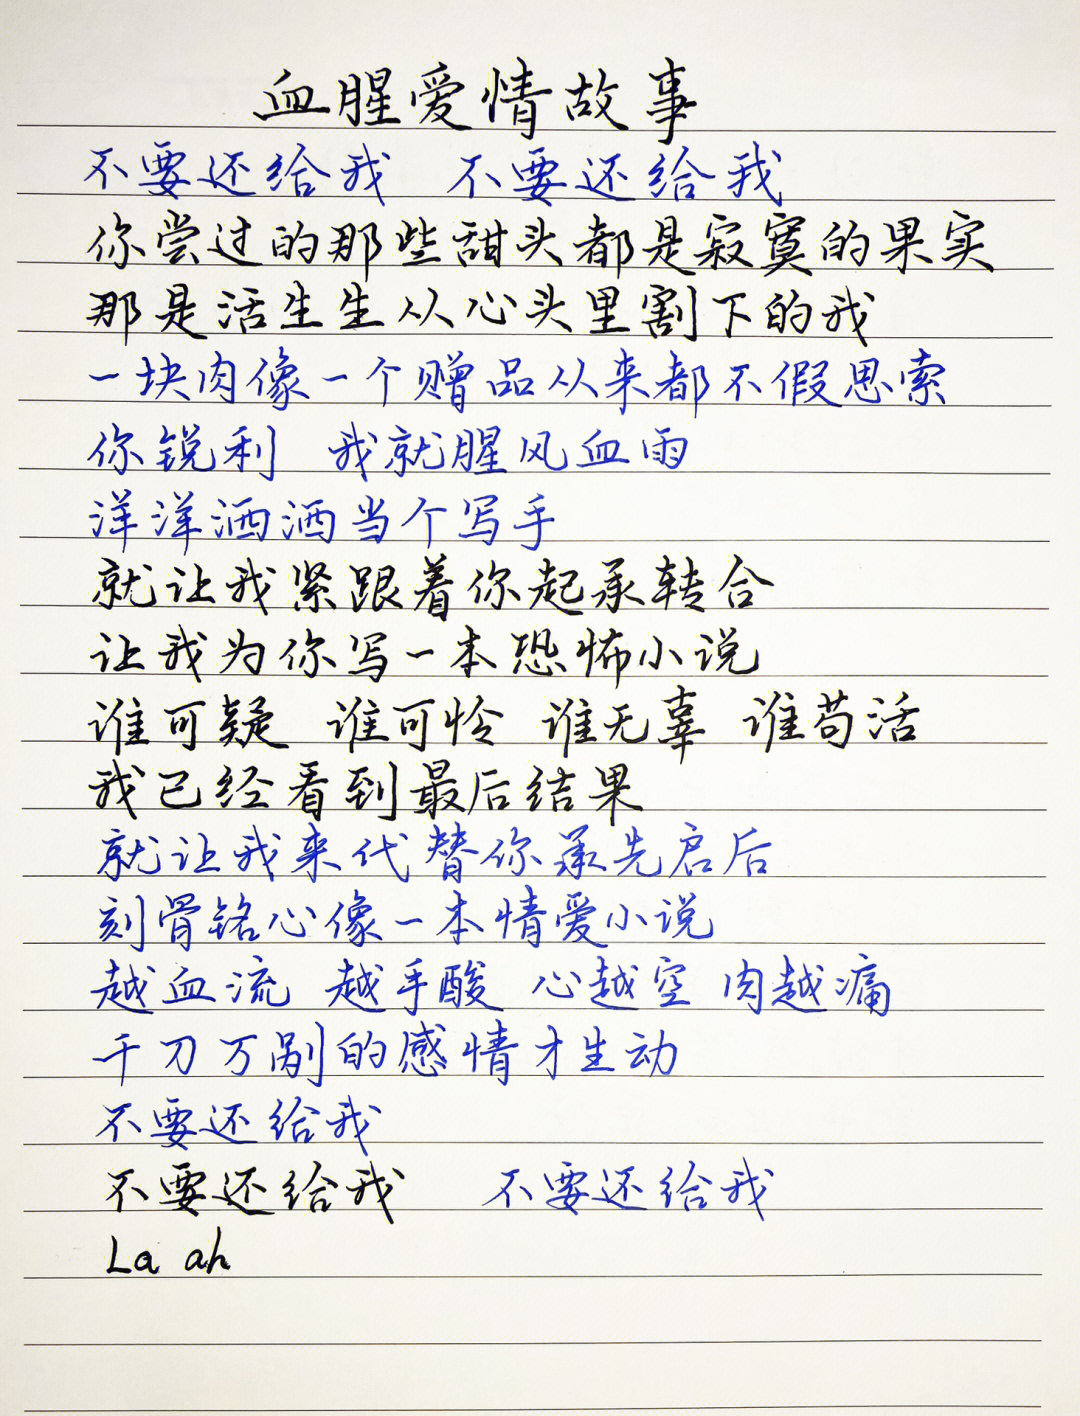 血腥爱情故事
不要还给我 不要还给我
你尝过的那些甜头都是寂寞的果实
那是活生生从心头里割下的我
一块肉像一个赠品从来都不假思索
你锐利 我就腥风血雨
洋洋洒洒当个写手
就让我紧跟着你起承转合
让我为你写一本恐怖小说
谁可疑 谁可怜 谁无辜 谁苟活
我已经看到最后结果
就让我来代替你承先启后
刻骨铭心像一本情爱小说
越血流 越手酸 心越空 肉越痛
千刀万剐的感情才生动
不要还给我
不要还给我 不要还给我
La ah